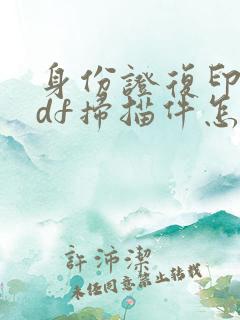 身份證復印
df掃描件怎
許沛潔
未经同意禁止转载